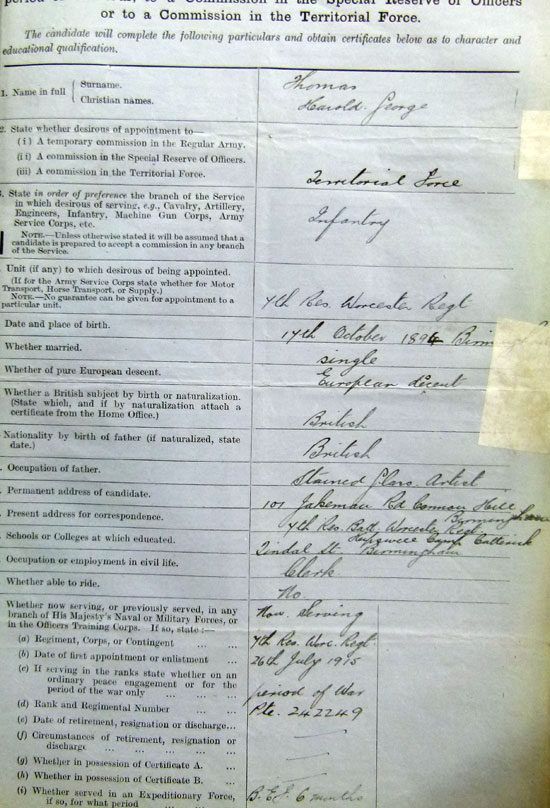 or to a Commission in the Territorial Force.
The candidate will complete the following particulars and obtain certificates below as to character and
educational qualification.
1. Name in full
Surname.
Christian names.
Thomas
Harold George
2. State whether desirous of appointment to—
(i) A temporary commission in the Regular Army.
(ii) A commission in the Special Reserve of Officers.
(iii) A commission in the Territorial Force.
Territorial Force
3. State in order of preference the branch of the Service
in which desirous of serving, e.g., Cavalry, Artillery,
Engineers, Infantry, Machine Gun Corps, Army
Service Corps, etc.
NOTE.—Unless otherwise stated it will be assumed that a
candidate is prepared to accept a commission in any branch
of the Service.
Infantry
Unit (if any) to which desirous of being appointed.
(If for the Army Service Corps state whether for Motor
Transport, Horse Transport, or Supply.)
NOTE.—No guarantee can be given for appointment to a
particular unit.
7th Res. Worcester Regt
Date and place of birth.
17th October 1894
Whether married.
single
Whether of pure European descent.
European decent
Whether a British subject by birth or naturalization.
(State which, and if by naturalization attach a
certificate from the Home Office.)
British
Nationality by birth of father (if naturalized, state
date.)
British
Occupation of father.
Stained Glass Artist
Permanent address of candidate.
101 Jakeman Rd Cannon Hill
Birmingham
Present address for correspondence.
7th Res. Batt. Worcester Regt
Hipswell Camp Catterick
Schools or Colleges at which educated.
Tindal St. Birmingham
Occupation or employment in civil life.
Clerk.
Whether able to ride.
No.
Whether now serving, or previously served, in any
branch of His Majesty's Naval or Military Forces, or
in the Officers Training Corps. If so, state :—
Now Serving
(a) Regiment, Corps, or Contingent ... ...
7th Res. Worc. Regt
(b) Date of first appointment or enlistment ...
26th July 1915
(c) If serving in the ranks state whether on an
ordinary peace engagement or for the
period of the war only ... ... ...
period of War
(d) Rank and Regimental Number ... ...
Pte. 242249
(e) Date of retirement, resignation or discharge...
(f) Circumstances of retirement, resignation or
discharge ... ... ... ...
(g) Whether in possession of Certificate A. ...
(h) Whether in possession of Certificate B. ...
(i) Whether served in an Expeditionary Force,
if so, for what period ... ...
B.E.F. 6 months